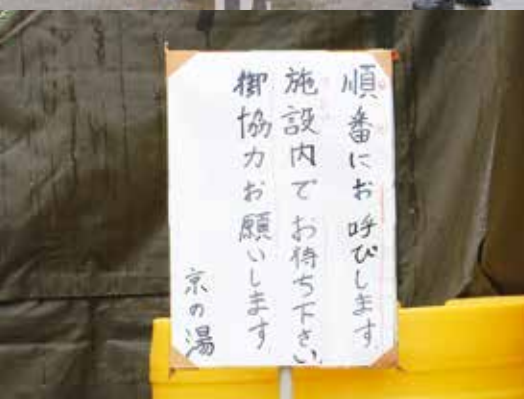 順番にお呼びします
施設内でお待ち下さい
御協力お願いします
京の湯